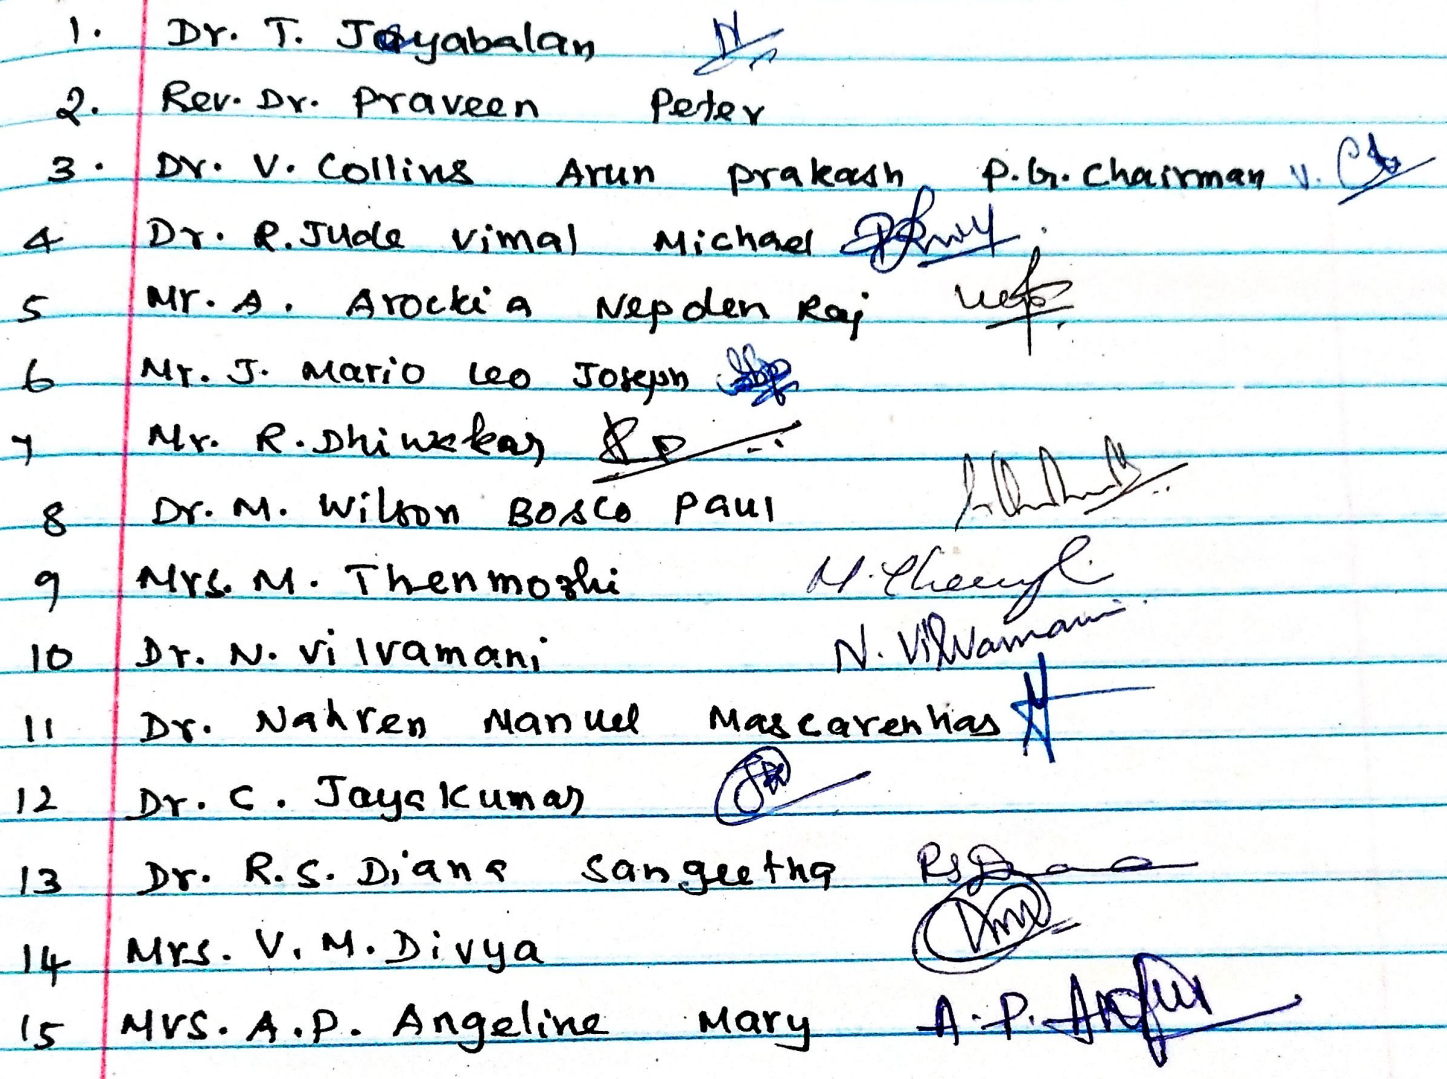 1. Dr. T. Jayabalan
2. Rev. Dr. Praveen Peter
3. Dr. V. Collins Arun Prakash P.G. Chairman V.
4 Dr. R. Jude Vimal Michael
5 Mr. A. Arockia Nepolen Raj
6 Mr. J. Mario Leo Joseph
7 Mr. R. Dhiwakar
8 Dr. M. Wilson Bosco Paul
9 Mrs. M. Thenmozhi
10 Dr. N. Vilvamani N. Vilvamani
11 Dr. Nahren Manuel Mascarenhas
12 Dr. C. Jayakumar
13 Dr. R.S. Diana Sangeetha
14 Mrs. V. M. Divya
15 Mrs. A.P. Angeline Mary A.P.